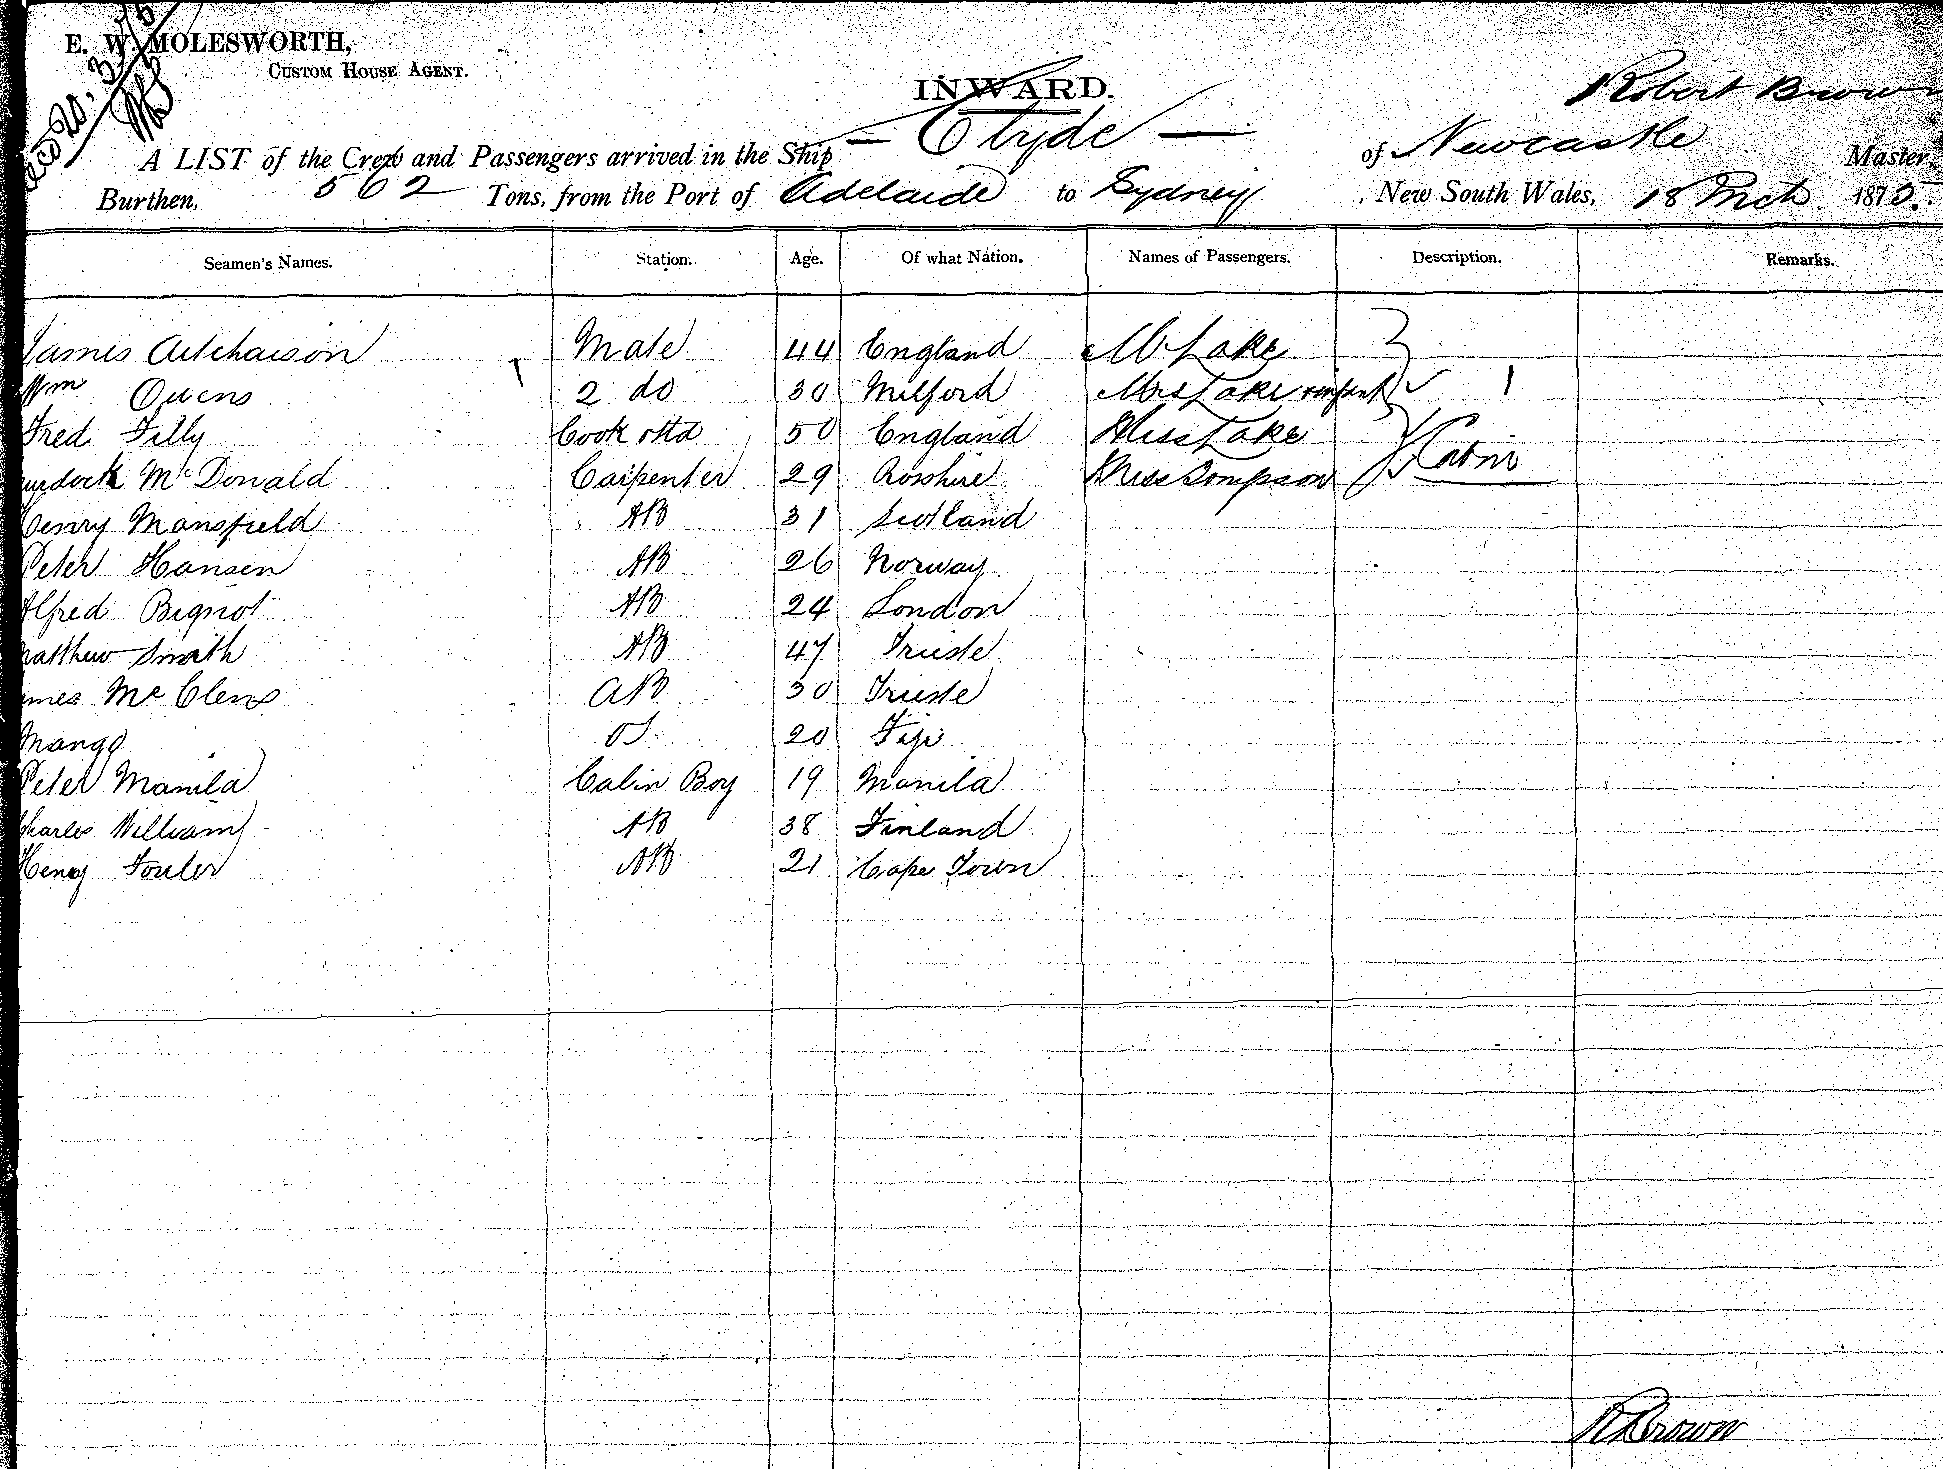 E. W. MOLESWORTH,
CUSTOM HOUSE AGENT.
INWARD.
Robert Brown
A LIST of the Crew and Passengers arrived in the Ship — Clyde — of Newcastle Master,
Burthen, 562 Tons, from the Port of Adelaide to Sydney, New South Wales, 18 Mch 1875.
Seamen's Names. Station. Age. Of what Nation. Names of Passengers. Description. Remarks.
James Aitchaison Mate 44 England Mr Lake
Wm Owens 2 do 30 Milford Mrs Lake & infant 1
Fred Filly Cook & Std 50 England Miss Lake Cabin
Murdock McDonald Carpenter 29 Rosshire Miss Sompson
Henry Mansfield AB 31 Scotland
Peter Hansen AB 26 Norway
Alfred Bignot AB 24 London
Matthew Smith AB 47 Trieste
James McClens AB 30 Trieste
Mango OS 20 Fiji
Peter Manila Cabin Boy 19 Manila
Charles William AB 38 Finland
Henry Fouler AB 21 Cape Town
R Brown